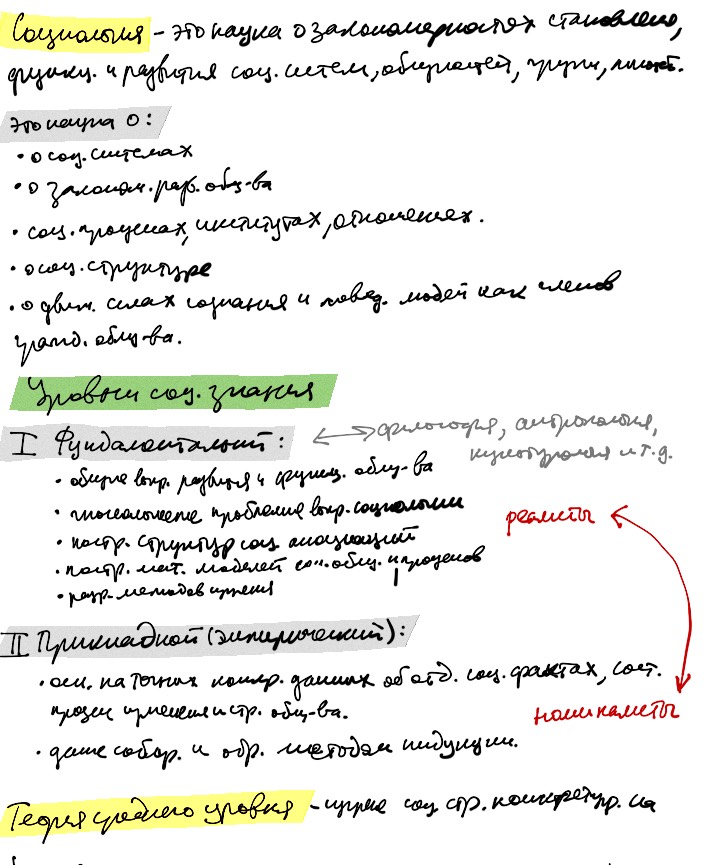 Социология - это наука о закономерностях становлено,
функц. и развития соц. систем, общностей, групп, личност.
Это наука о:
• о соц. системах
• о законом. разв. общ-ва
• соц. процессах, институтах, отношениях.
• о соц. структуре
• о движ. силах сознания и повед. людей как членов
гражд. общ-ва.
Уровни соц. знания
I Фундаментальный: ↔ философия, антропология,
культурология и т.д.
• общие вопр. развития и функц. общ-ва
• гносеологические проблемы вопр. социологии
• постр. структур соц. ассоциаций
• постр. мат. моделей соц. общ. и процессов
• разр. методов изучения
реалисты
II Прикладной (эмпирический):
• осн. на точных конкр. данных об отд. соц. фактах, сост.
процен изменения и стр. общ-ва.
номиналисты
• даные собир. и обр. методом индукции.
Теория среднего уровня - изучение соц. стр. конкретизир. на